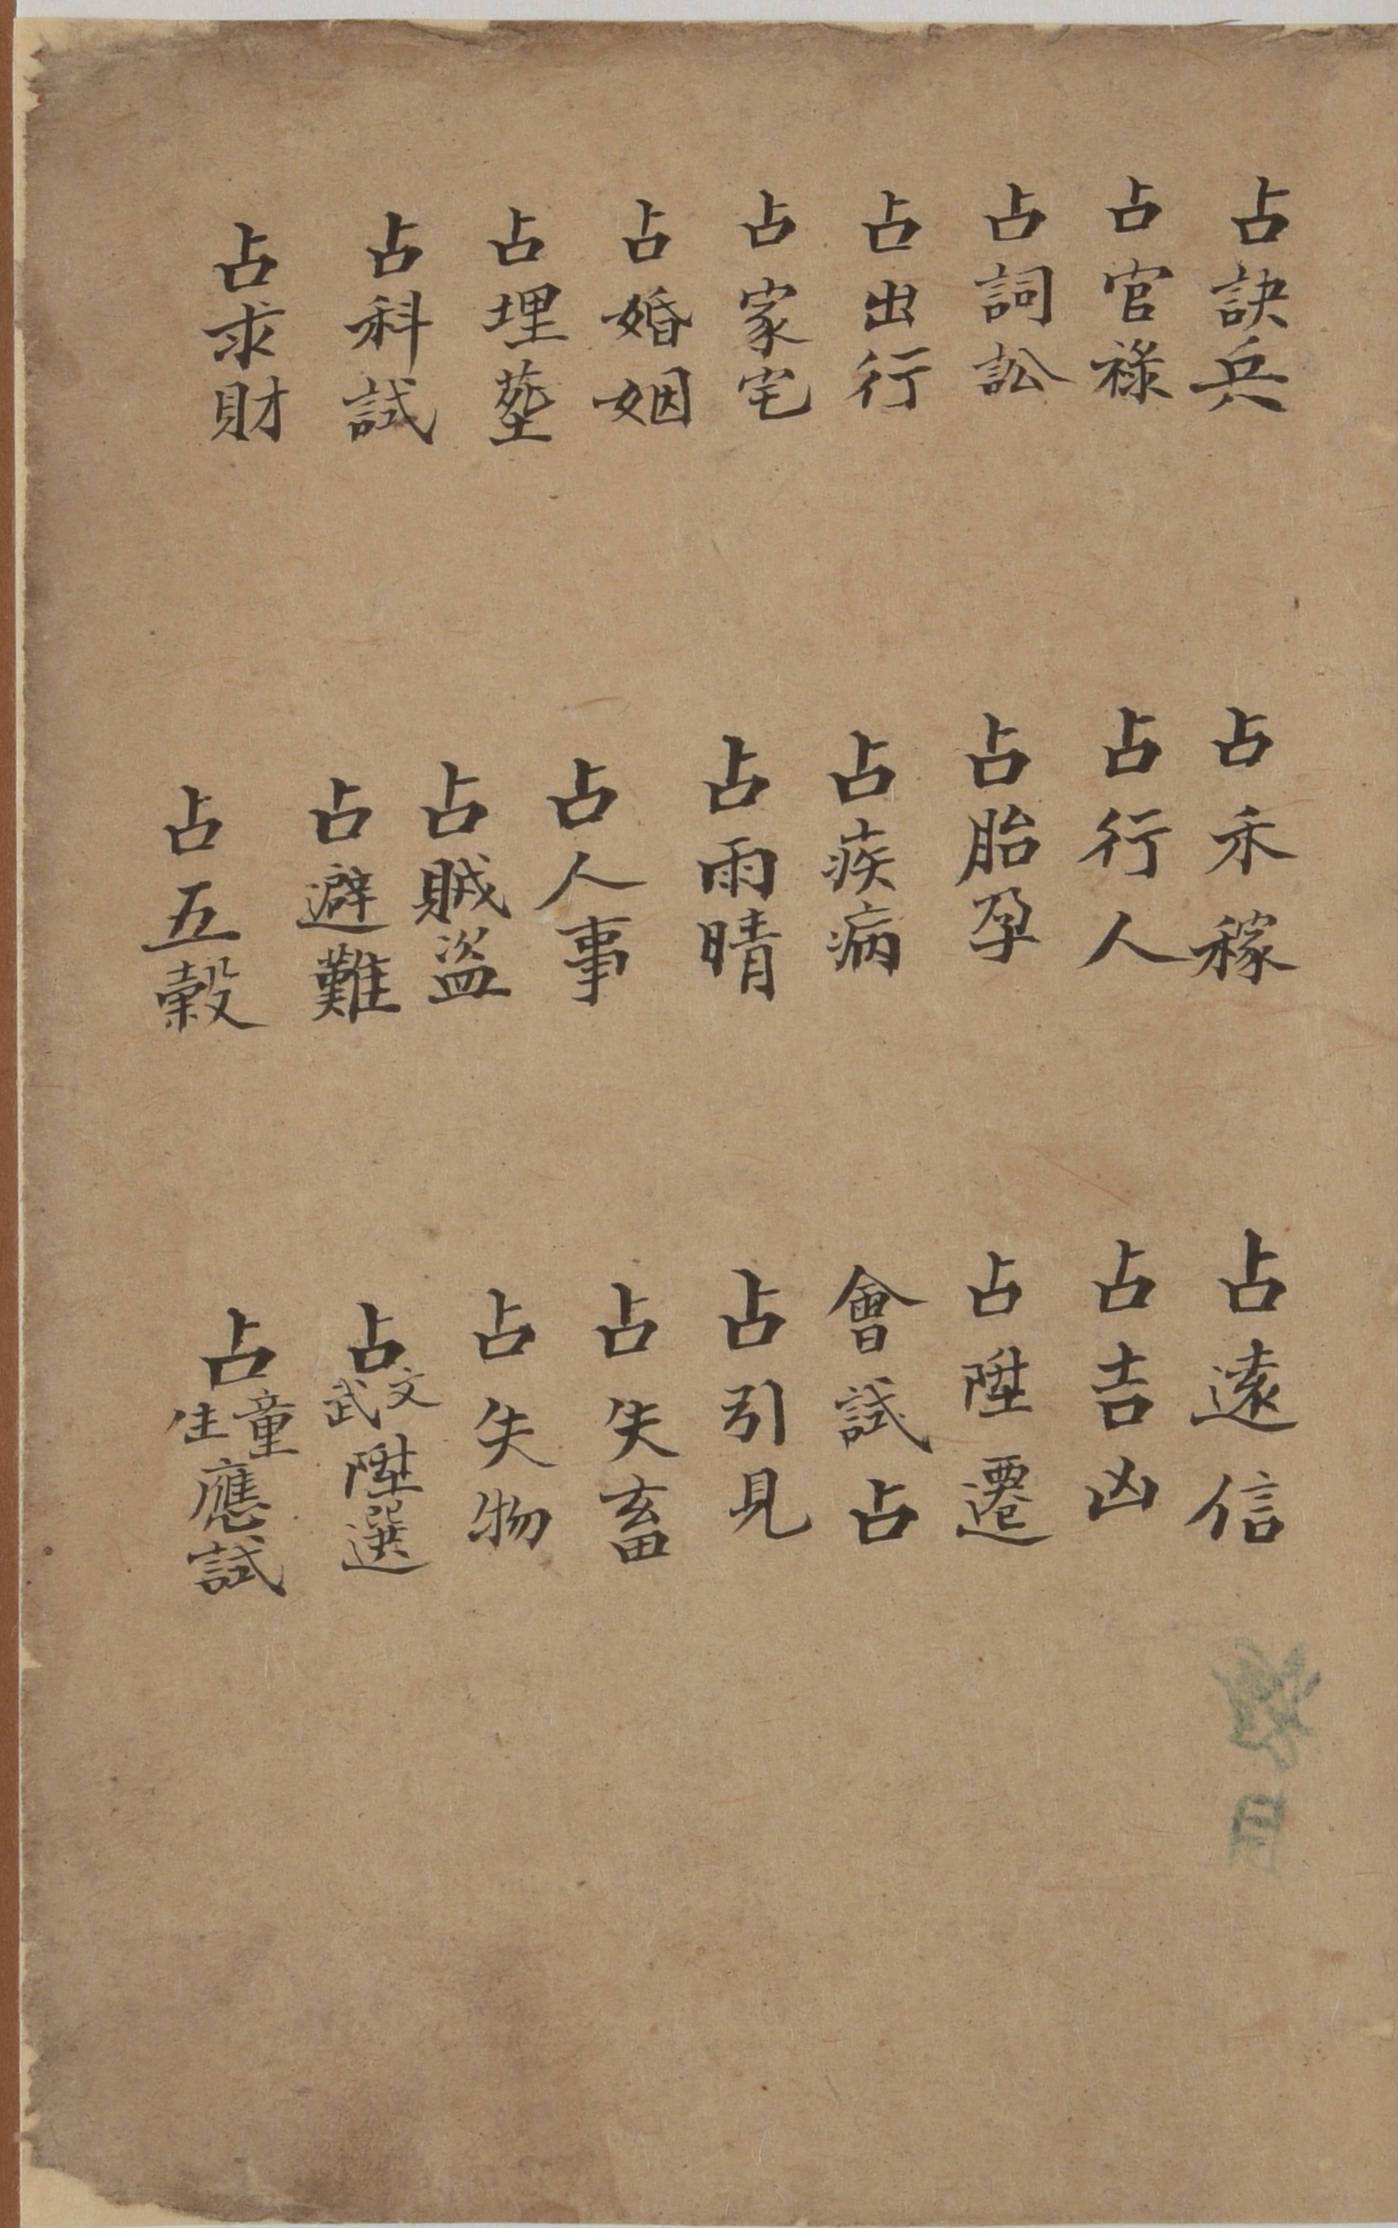 占訣兵
占禾稼
占遠信
占官祿
占行人
占吉凶
占詞訟
占胎孕
占陞遷
占出行
占疾病
會試占
占家宅
占雨晴
占引見
占婚姻
占人事
占失畜
占埋塟
占賊盜
占失物
占科試
占避難
占文武陞選
占求財
占五穀
占童生應試